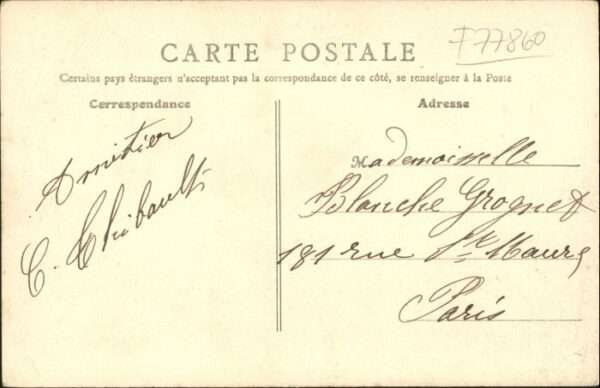 F77860
CARTE POSTALE
Certains pays étrangers n'acceptant pas la correspondance de ce côté, se renseigner à la Poste
Correspondance
Amitier
C. Thibault
Adresse
Mademoiselle
Blanche Grognet
181 rue St. Maure
Paris